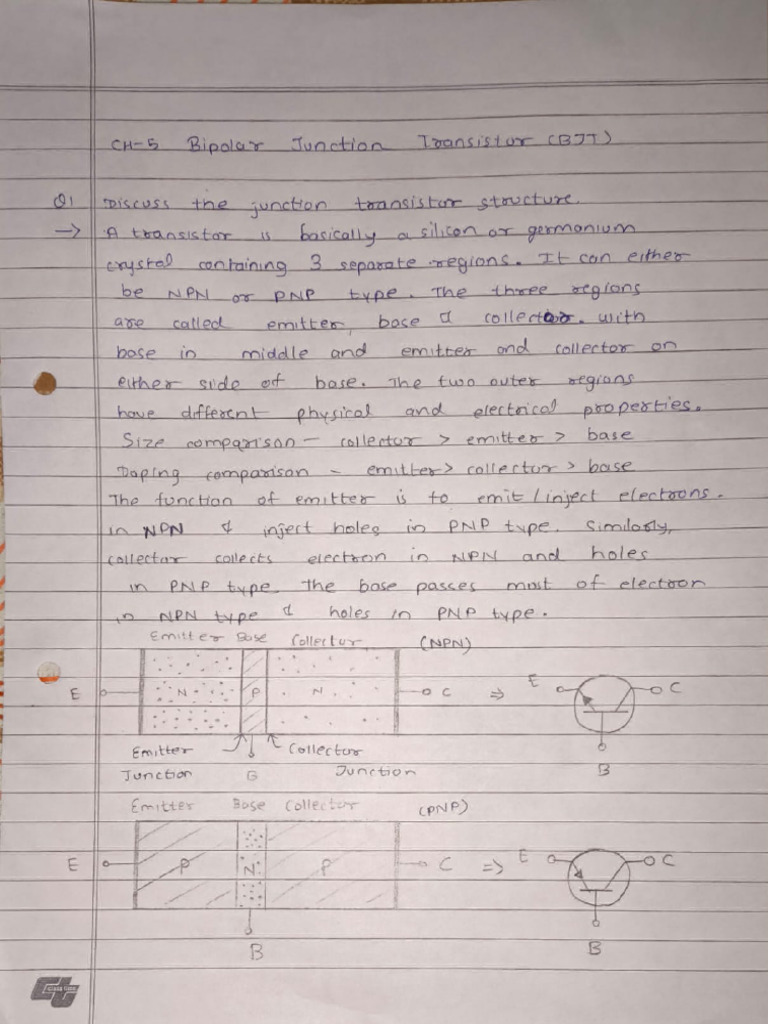 CH-5 Bipolar Junction Transistor (BJT)
Q1 Discuss the junction transistor structure.
→ A transistor is basically a silicon or germanium
crystal containing 3 separate regions. It can either
be NPN or PNP type. The three regions
are called emitter, base & collector. with
base in middle and emitter and collector on
either side of base. The two outer regions
have different physical and electrical properties.
Size comparison - collector > emitter > base
Doping comparison - emitter > collector > base
The function of emitter is to emit/inject electrons.
in NPN & inject holes in PNP type. Similarly,
collector collects electron in NPN and holes
in PNP type. The base passes most of electron
in NPN type & holes in PNP type.
Emitter Base Collector (NPN)
E N P N C ⇒ E C
Emitter Collector
Junction B Junction B
Emitter Base Collector (PNP)
E P N P C ⇒ E C
B B